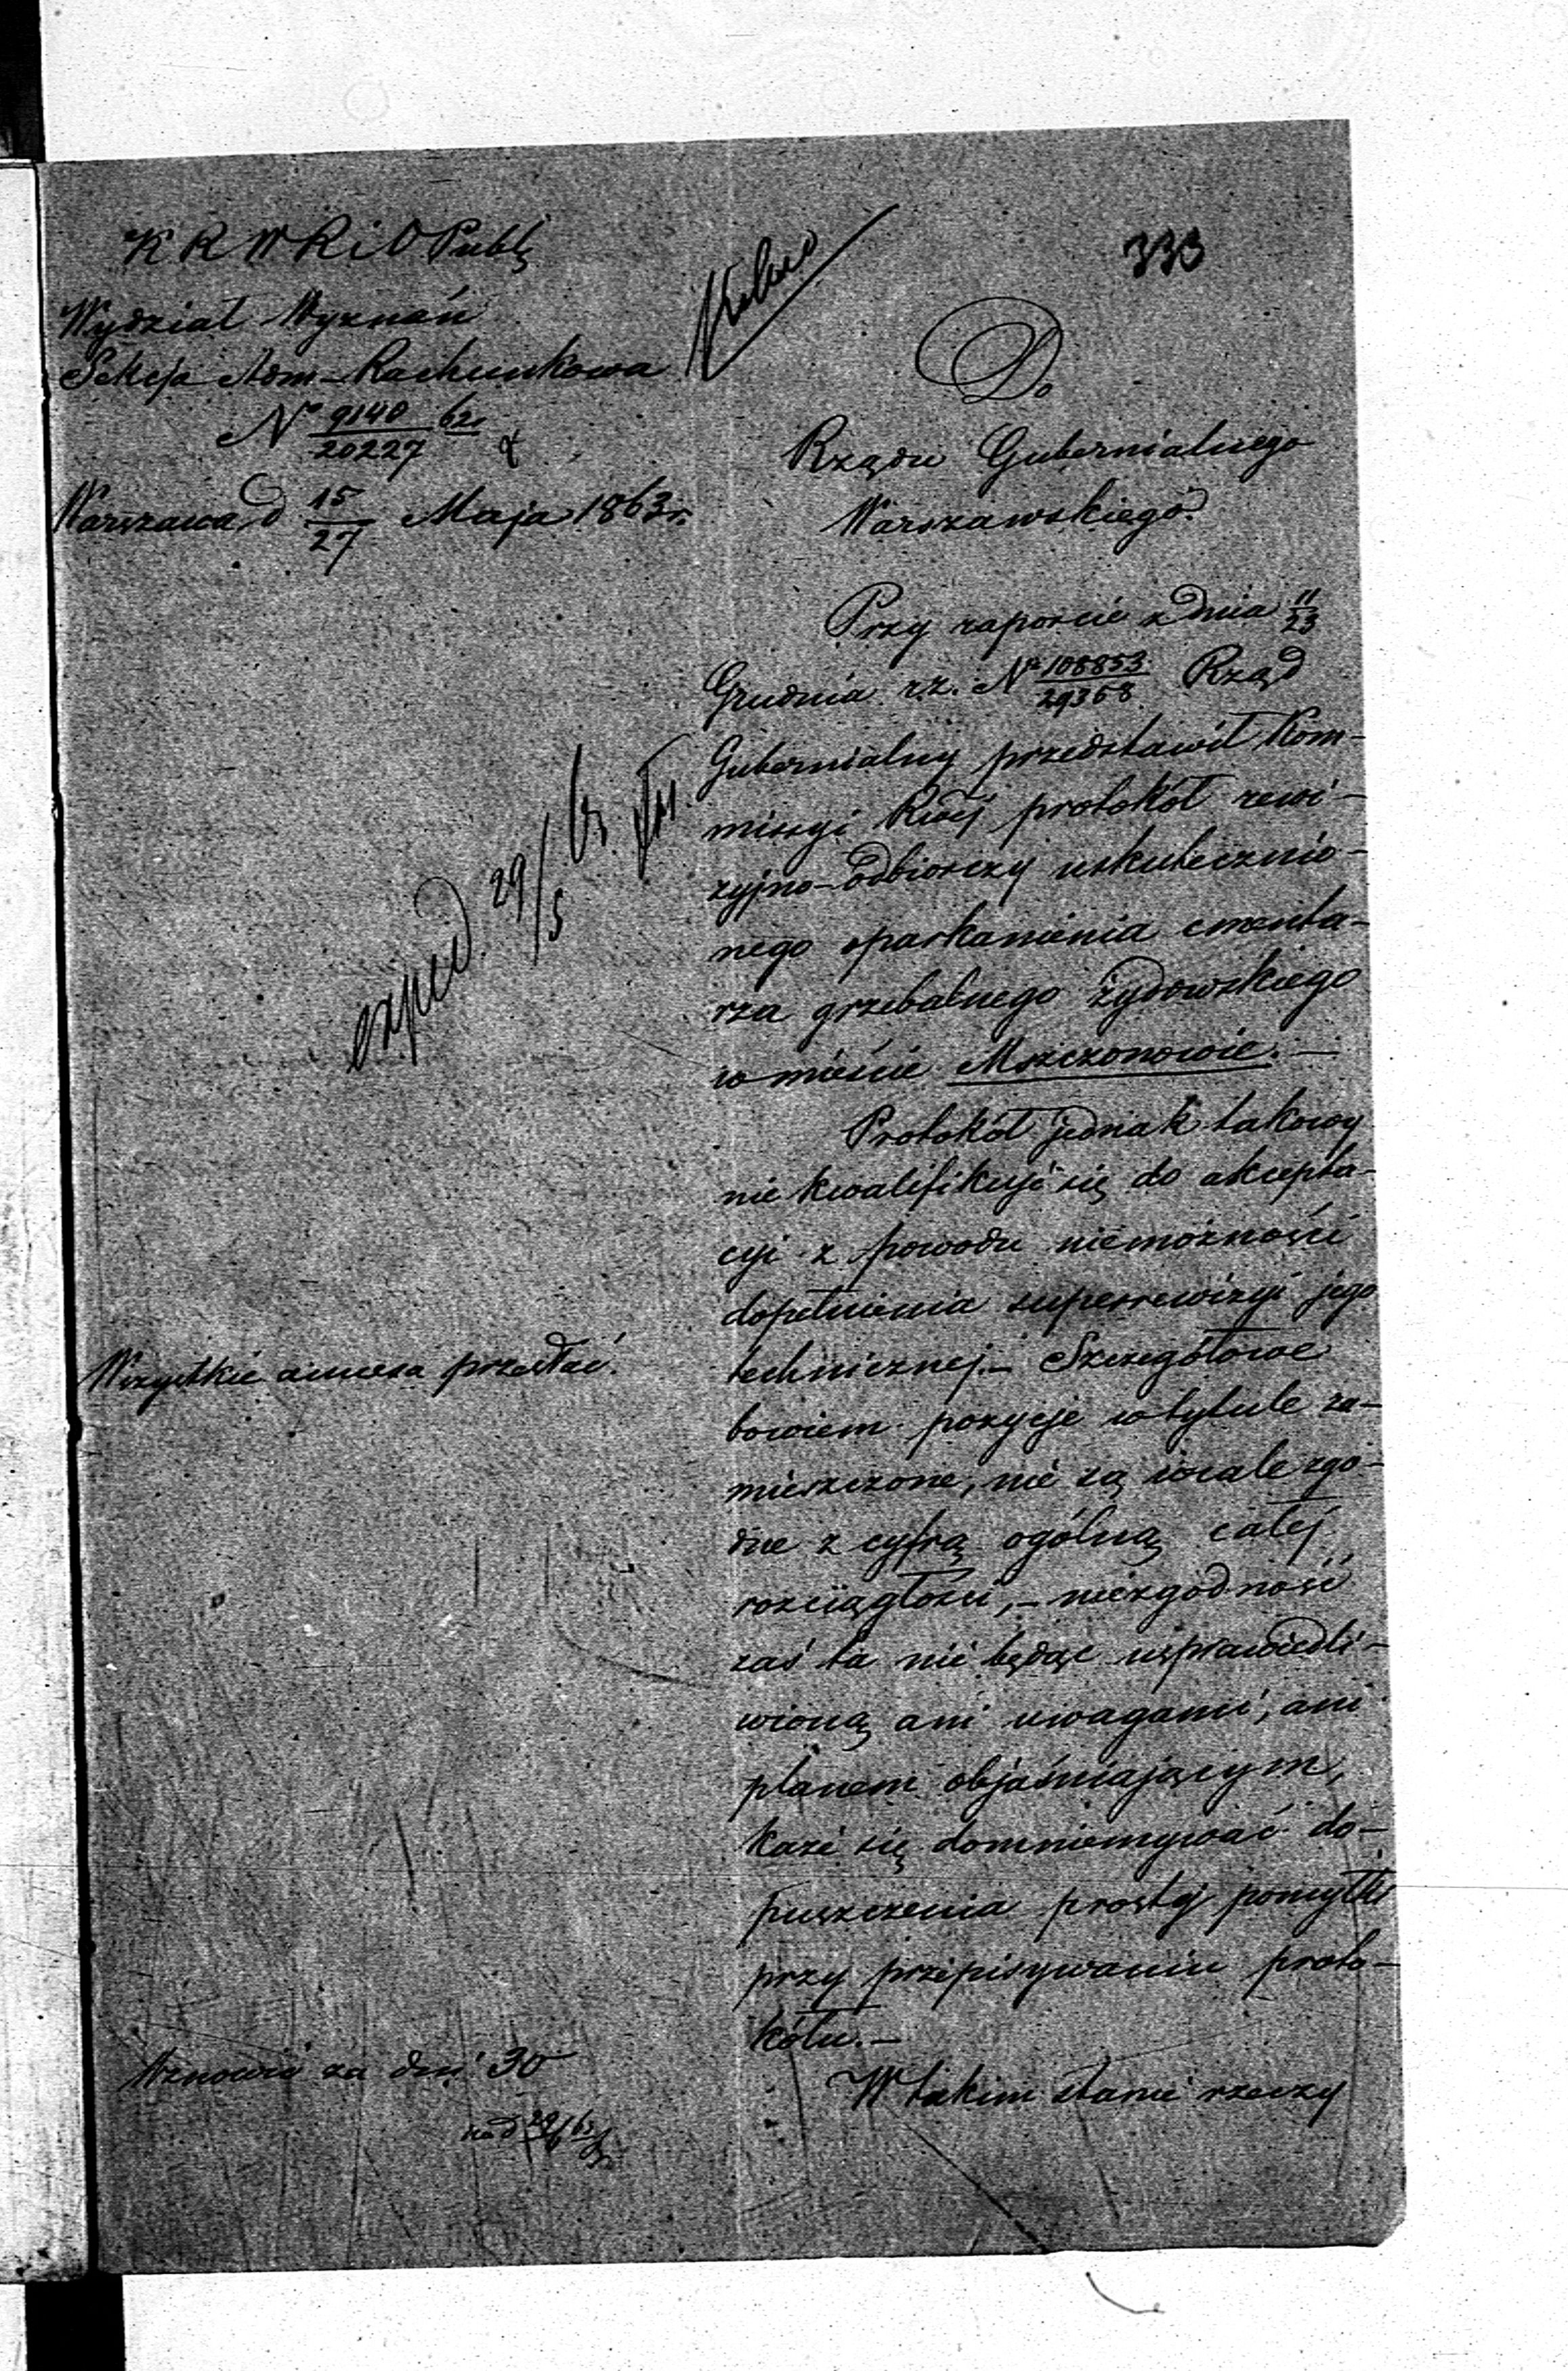 333
K R W R i O Publ
Wydział Wyznań
Sekcja Adm-Rachunkowa
No 9140/20227 62
Warszawa d 15/27 Maja 1863 r.
Do
Rządu Gubernialnego
Warszawskiego
Przy raporcie z dnia 11/23
Grudnia rz. No 108853/29368 Rząd
Gubernialny przedstawił Kom-
missyi Rząj protokół rewi-
zyjno-odbiorczy uskutecznio-
nego oparkanienia cmenta-
rza grzebalnego żydowskiego
w mieście Mszczonowie. —
Protokół jednak takowy
nie kwalifikuje się do akcepta-
cyi z powodu niemożności
dopełnienia superrewizyi jego
technicznej. — Szczegółowe
bowiem pozycje w tytule za-
mieszczone, nie są wcale zgo-
dne z cyfrą ogólną całej
rozciągłości, — niezgodność
zaś ta nie będąc usprawiedli-
wioną ani uwagami, ani
planem objaśniającym,
każe się domniemywać do-
puszczenia prostej pomyłki
przy przepisywaniu proto-
kółu. —
W takim stanie rzeczy
exped. 29/5 63
Wszystkie annexa przesłać.
Wznowić za dni 30